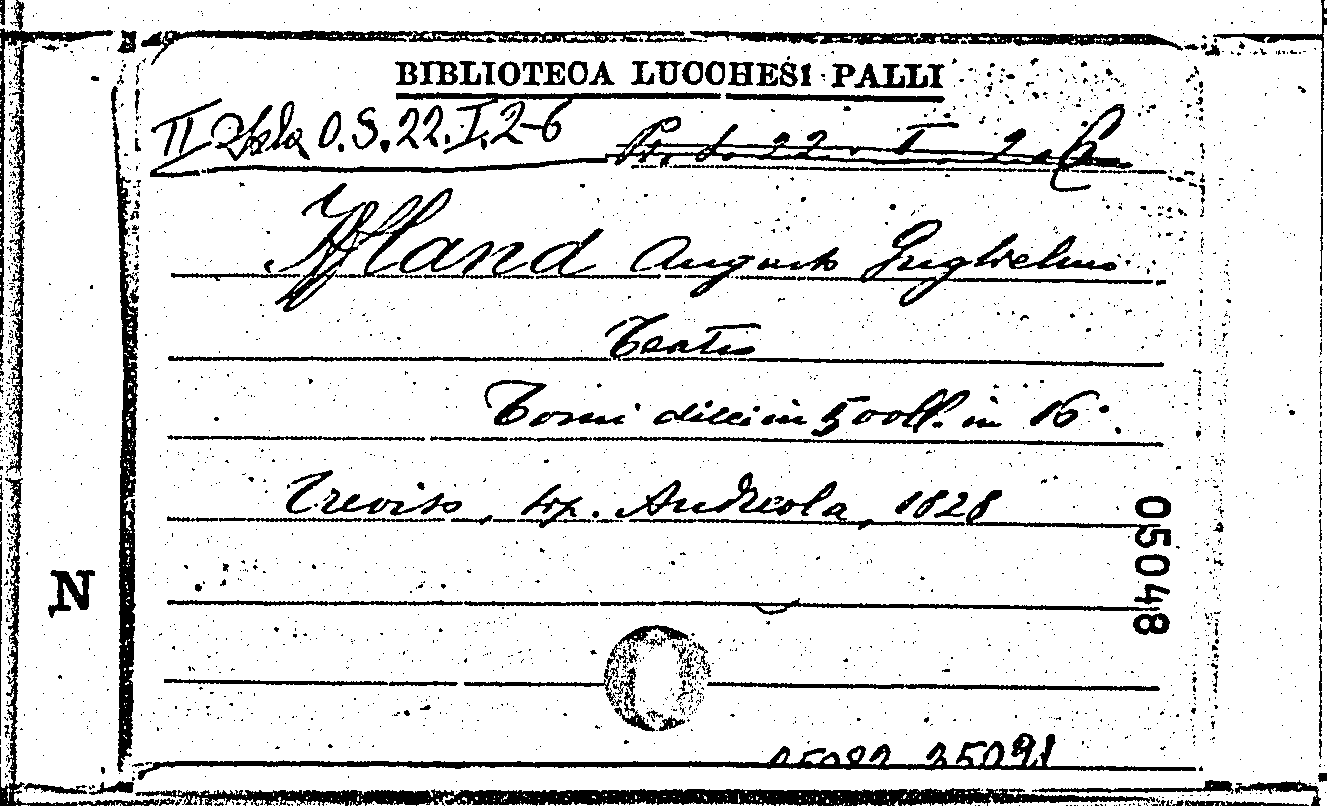 BIBLIOTECA LUCCHESI PALLI
II Sala O.S.22.I.2-6
Iffland Augusto Guglielmo
Teatro
Tomi dieci in 5 voll. in 16°.
Treviso, tip. Andreola, 1828
05048
N
35091